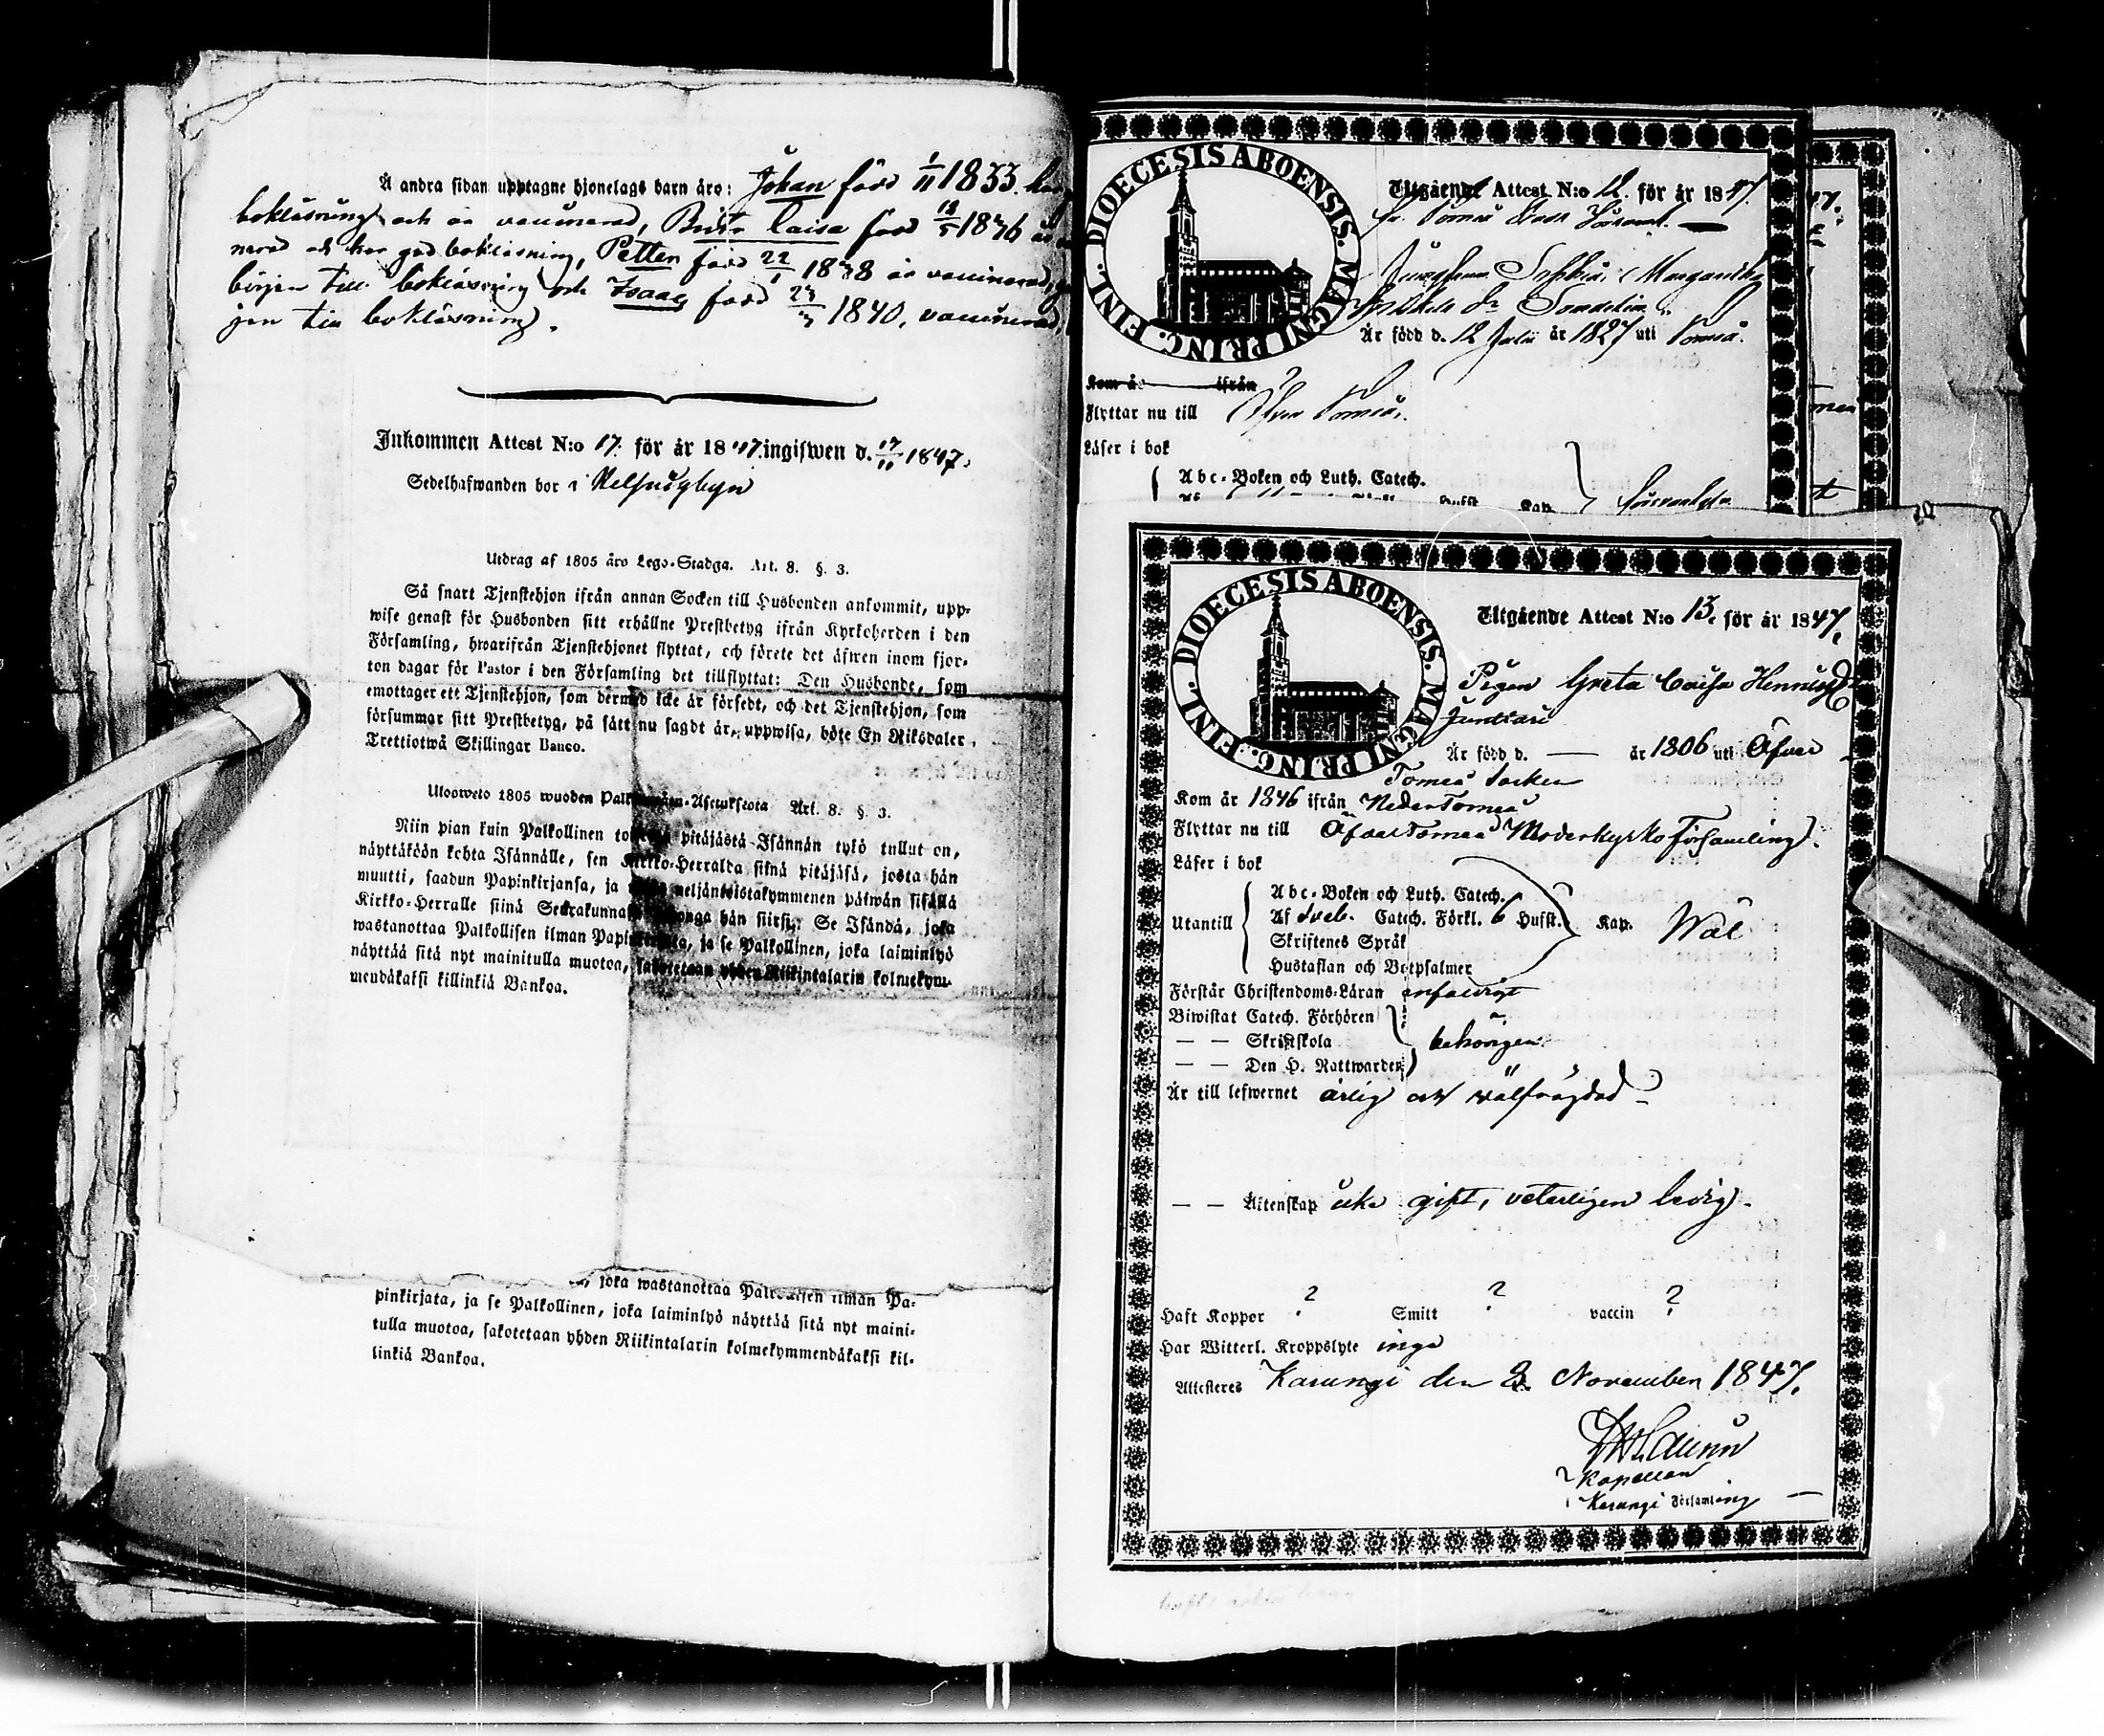 Å andra sidan upptagne hjonelags barn äro: Johan född 1/11 1833. har
bokläsning och är vaccinerad, Brita Caisa född 1836 är
nerad och har god bokläsning, Petter född 22/1 1838 är vaccinerad,
början till bokläsning och Isaac född 1840, vaccinerad,
jan till bokläsning.
Inkommen Attest N:o 17. för år 1847. ingifwen d. 17/11 1847.
Sedelhafwanden bor i Helsingbyn
Utdrag af 1805 års Lego-Stadga. Art. 8. §. 3.
Så snart Tjenstehjon ifrån annan Socken till Husbonden ankommit, upp-
wise genast för Husbonden sitt erhållne Prestbetyg ifrån Kyrkoherden i den
Församling, hwarifrån Tjenstehjonet flyttat, och förete det äfwen inom fjor-
ton dagar för Pastor i den Församling det tillflyttat: Den Husbonde, som
emottager ett Tjenstehjon, som dermed icke är försedt, och det Tjenstehjon, som
försummar sitt Prestbetyg, på sätt nu sagdt är, uppwisa, böte En Riksdaler
Trettiotwå Skillingar Banco.
Ulosweto 1805 wuoden Art. 8. §. 3.
Niin pian kuin Palkollinen pitäjästä Isännän tykö tullut on,
näyttäköön kohta Isännälle, sen Kirkko-Herralda siinä pitäjäsä, josta hän
muutti, saadun Papinkirjansa, ja neljäntoistakymmenen päiwän sisällä
Kirkko-Herralle siinä Seurakunnasa hän siirsi: Se Isändä, joka
wastanottaa Palkollisen ilman ja se Palkollinen, joka laiminlyö
näyttää sitä nyt mainitulla muotoa, sakotetaan yhden Riikintalarin kolmekym-
mendäkaksi killinkiä Bankoa.
joka wastanottaa Palkollisen ilman Pa-
pinkirjata, ja se Palkollinen, joka laiminlyö näyttää sitä nyt maini-
tulla muotoa, sakotetaan yhden Riikintalarin kolmekymmendäkaksi kil-
linkiä Bankoa.
DIOECESIS ABOENSIS. MAGNI PRINC. FINL.
Utgående Attest N:o 12. för år 1847.
Torneå
Sophia Margaretha
Är född d. 12 Julii år 1827 uti Torneå.
Kom år ifrån
Flyttar nu till Öfver Torneå.
Läser i bok
Abc-Boken och Luth. Catech.
DIOECESIS ABOENSIS. MAGNI PRINC. FINL.
Utgående Attest N:o 13. för år 1847.
Pigan Greta Caisa
Är född d. — år 1806 uti Öfver
Torneå Socken
Kom år 1846 ifrån Neder Torneå
Flyttar nu till Öfver Torneå Moderkyrko Församling.
Läser i bok
Utantill
Abc-Boken och Luth. Catech.
Af Sveb. Catech. Förkl. 6 Hufst. Kap. Wäl
Skriftenes Språk
Hustaflan och Botpsalmer
Förstår Christendoms-Läran enfaldigt
Biwistat Catech. Förhören
— — Skriftskola behörigen
— — Den H. Nattwarden
Är till lefwernet ärlig och välfrägdad
— — Äktenskap icke gift, veterligen ledig.
Haft Koppor ? Smitt ? vaccin ?
Har Witterl. Kroppslyte inga
Attesteras Karungi den 3. November 1847.
Kapellan
i Karungi Församling